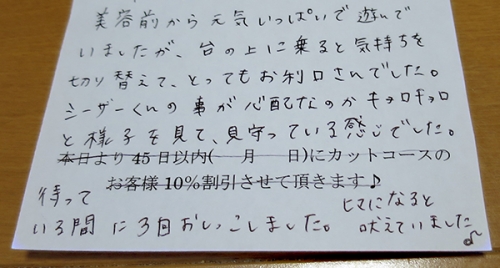 美容前から元気いっぱいで遊んで
いましたが、台の上に乗ると気持ちを
切り替えて、とってもお利口さんでした。
シーザーくんの事が心配なのかキョロキョロ
と様子を見て、見守っている感じでした。
本日より45日以内(　月　日)にカットコースの
お客様10%割引させて頂きます♪
待って
いる間に3回おしっこしました。
ヒマになると
吠えていました♪